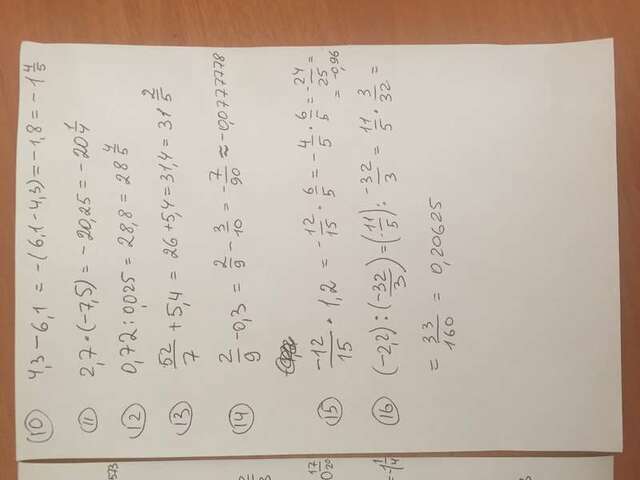 10 4,3 - 6,1 = -(6,1 - 4,3) = -1,8 = -1 4/5
573
11 2,7 · (-7,5) = -20,25 = -20 1/4
12 0,72 : 0,025 = 28,8 = 28 4/5
13 52/7 + 5,4 = 26 + 5,4 = 31,4 = 31 2/5
14 2/9 - 0,3 = 2/9 - 3/10 = -7/90 ≈ -0,0777778
15 -12/15 · 1,2 = -12/15 · 6/5 = -4/5 · 6/5 = -24/25 =
= -0,96
16 (-2,2) : (-32/3) = (-11/5) : -32/3 = 11/5 · 3/32 =
= 33/160 = 0,20625